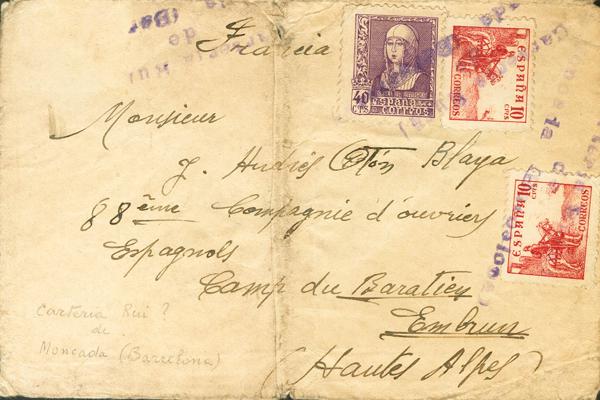 Francia
40 CTS
España
Correos
ESPAÑA 10 CTS
CORREOS
ESPAÑA 10 CTS
CORREOS
Monsieur
J. Hudiés Otón Blaya
88ème Compagnie d'ouvriers
Espagnols
Camp du Baratier
Embrun
(Hautes Alpes)
Carteria Rui?
de
Moncada (Barcelona)